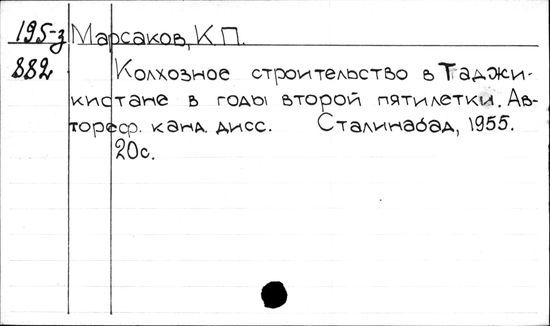 195-з Марсаков, К.П.
882 Колхозное строительство в Таджи-
кистане в годы второй пятилетки. Ав-
тореф. канд. дисс. Сталинабад, 1955.
20с.